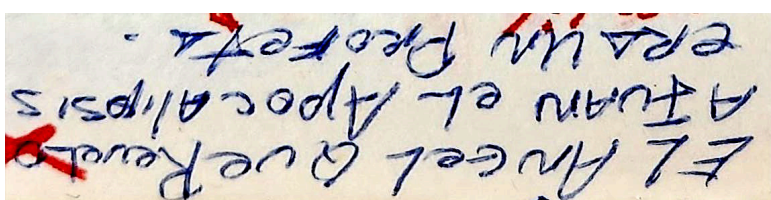 EL ANGEL QUE Revelo
A JUAN eL APOCALIPSIS
eRA UN PROFETA.